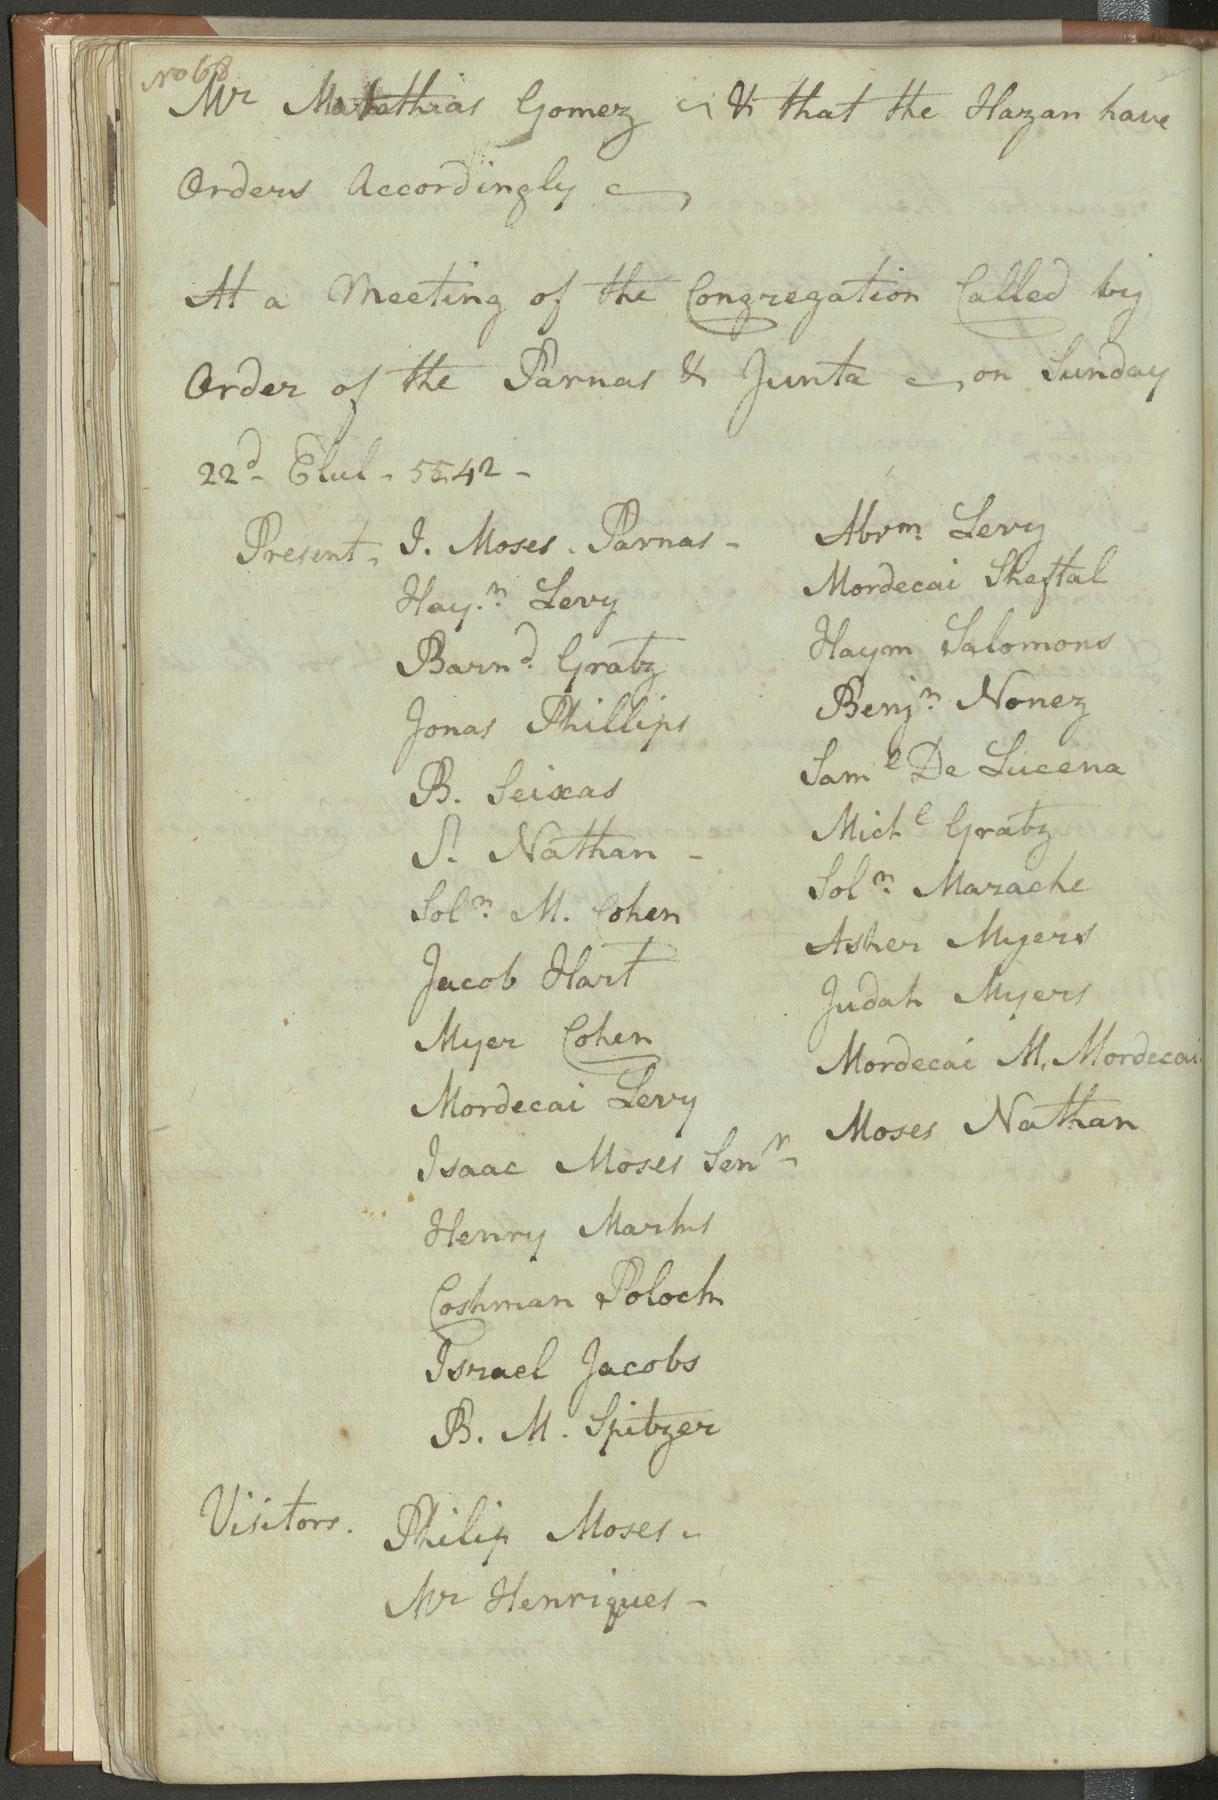 No 68
Mr Matathias Gomez & that the Hazan have
Orders Accordingly
At a Meeting of the Congregation Called by
Order of the Parnas & Junta on Sunday
22d Elul - 5542 -
Present, I. Moses. Parnas -
Hay.m Levy
Barnd. Gratz
Jonas Phillips
B. Seixas
S. Nathan -
Soln. M. Cohen
Jacob Hart
Myer Cohen
Mordecai Levy
Isaac Moses Senr
Henry Marks
Coshman Poloch
Israel Jacobs
B. M. Spitzer
Abrm. Levy
Mordecai Sheftal
Haym Salomons
Benjn. Nonez
Saml De Lucena
Michl Gratz
Soln. Marache
Asher Myers
Judah Myers
Mordecai M. Mordecai
Moses Nathan
Visitors. Philip Moses -
Mr Henriques -